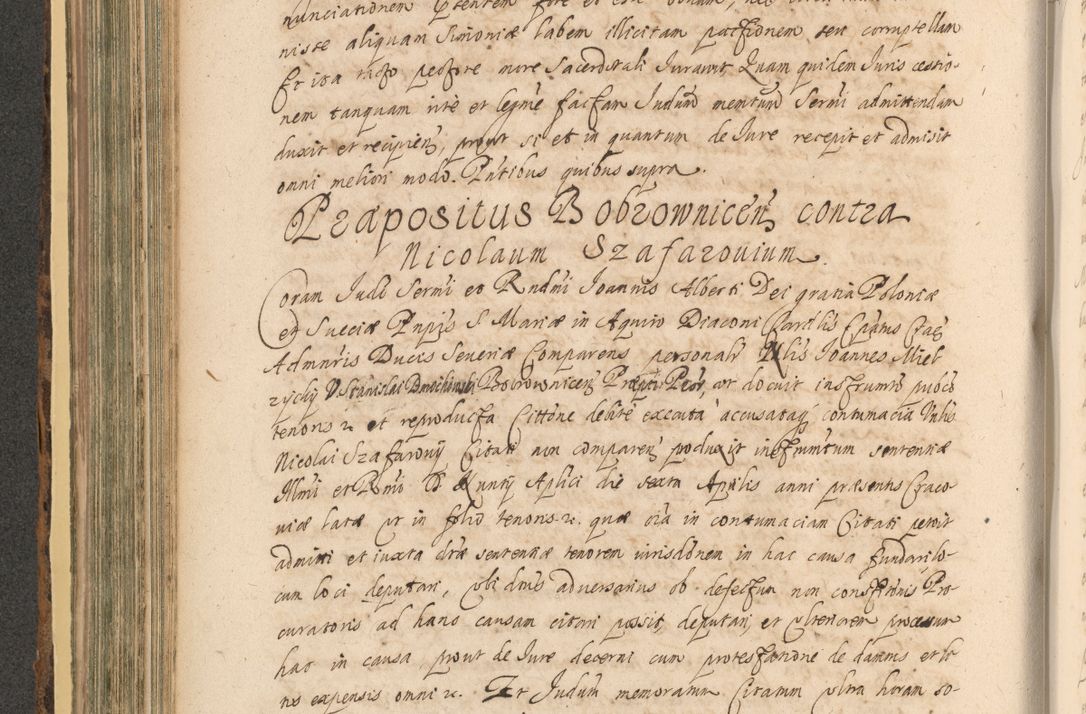 nunciationem pñtem fore et esse bonam, nec
niste aliquam Simoniæ labem illicitam pactionem seu corruptellam
Et ita tacto pectore more Sacerdotali Iuravit. Quam quidem Iuris cessio-
nem tanquam rite et legme factam Iudum mentum Sermi admittendam
duxit et recipien, prout si et in quantum de Iure recepit et admisit
omni meliori modo. Pntibus quibus supra.
Præpositus Bobrownicen contra
Nicolaum Szafarovium.
Coram Iudi Sermi et Rndmi Ioannis Alberti Dei gratia Poloniæ
et Sueciæ Pnpis S. Mariæ in Aquiro Diaconi Cardlis Epatus Crac
Admnris Ducis Severiæ Comparens personalr Nlis Ioannes Miel
zycky V Stanislai Dmochowski Bobrownicen Præpti Pcor, et docuit instrumto publco
tenoris r. et reproducta Cittône debite excuta accusataq contumacia Nlis
Nicolai Szafarovy Citati non comparen produxit instrmtum sententiæ
Illmi et Rmi D Nuntÿ Aplici die sexta Aprilis anni præsentis Craco-
viæ latæ ut in folio tenoris r. quæ oia in contumaciam Citati petijt
admitti et iuxta dtæ sententiæ tenorem iurisdônem in hac causa fundari lo-
cum loci deputari, Ubi dnus adversarius ob defectum non constitônis Pro-
curatoris ad hanc causam citari possit, deputari, et ulteriorem processum
hac in causa, prout de Iure decerni cum protestatione de damnis et li-
tis expensis omni r. Et Iudum memoratum Citatum ultra horam so-